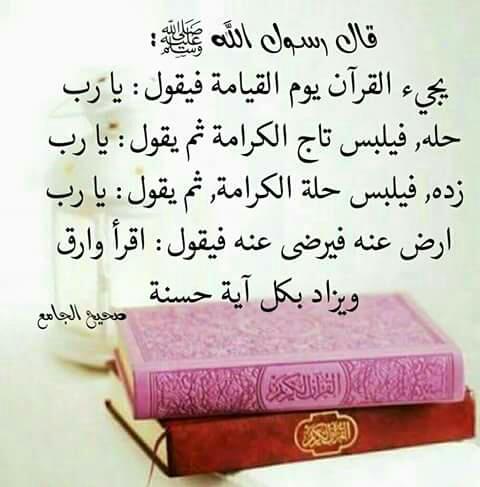 قال رسول الله ﷺ :
يجيء القرآن يوم القيامة فيقول: يا رب
حله, فيلبس تاج الكرامة ثم يقول: يا رب
زده, فيلبس حلة الكرامة, ثم يقول: يا رب
ارض عنه فيرضى عنه فيقول: اقرأ وارق
ويزاد بكل آية حسنة
صحيح الجامع
القرآن الكريم
القرآن الكريم